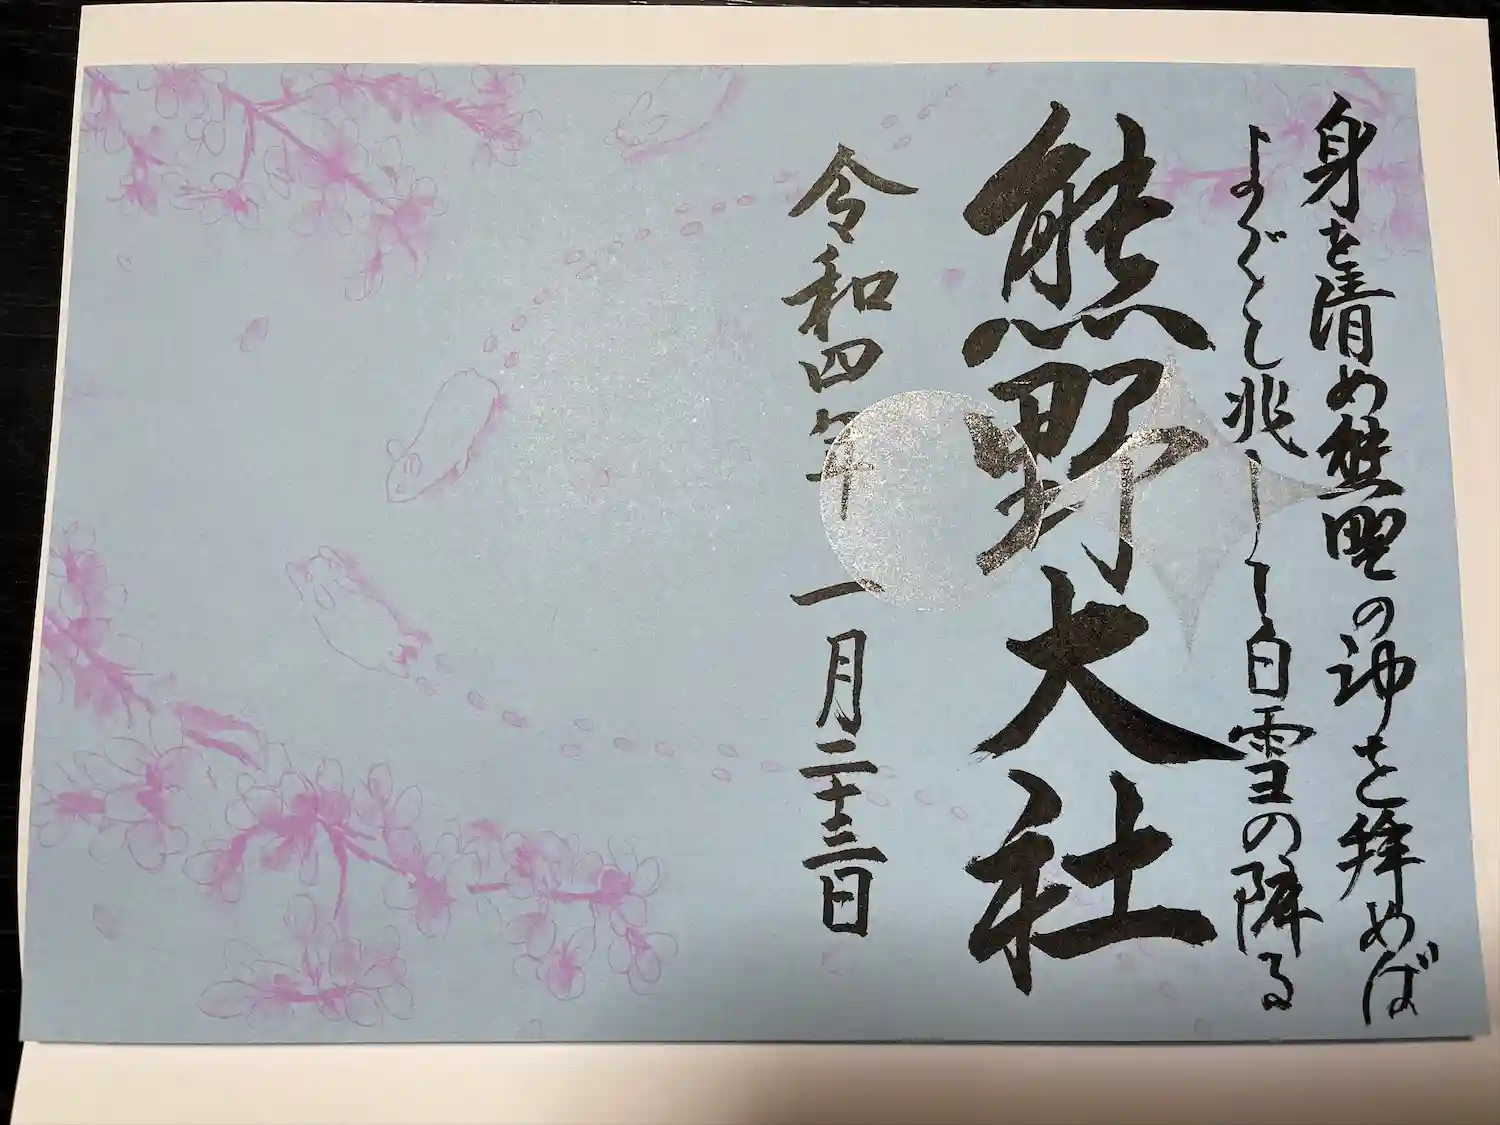 身を清め熊野の神を拝めば
よごとし兆しし白雪の降る
熊野大社
令和四年一月二十三日